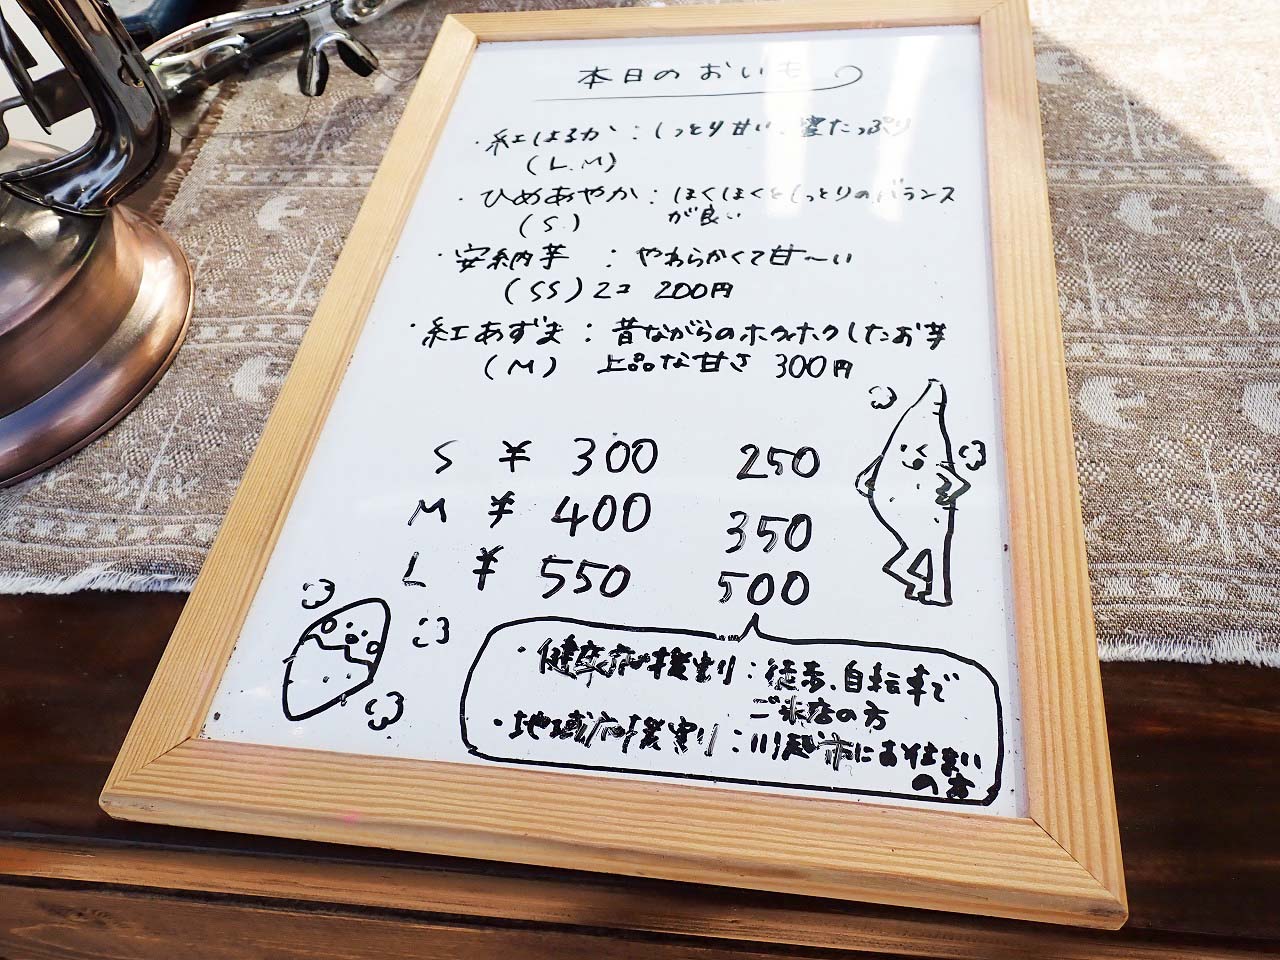 本日のおいも
・紅はるか：しっとり甘い、蜜たっぷり
（L.M）
・ひめあやか：ほくほくとしっとりのバランス
（S.）が良い
・安納芋：やわらかくて甘〜い
（SS）2コ 200円
・紅あずま：昔ながらのホクホクしたお芋
（M）上品な甘さ 300円
S ¥ 300 250
M ¥ 400 350
L ¥ 550 500
・健康応援割：徒歩、自転車で
ご来店の方
・地域応援割：川越市にお住まい
の方